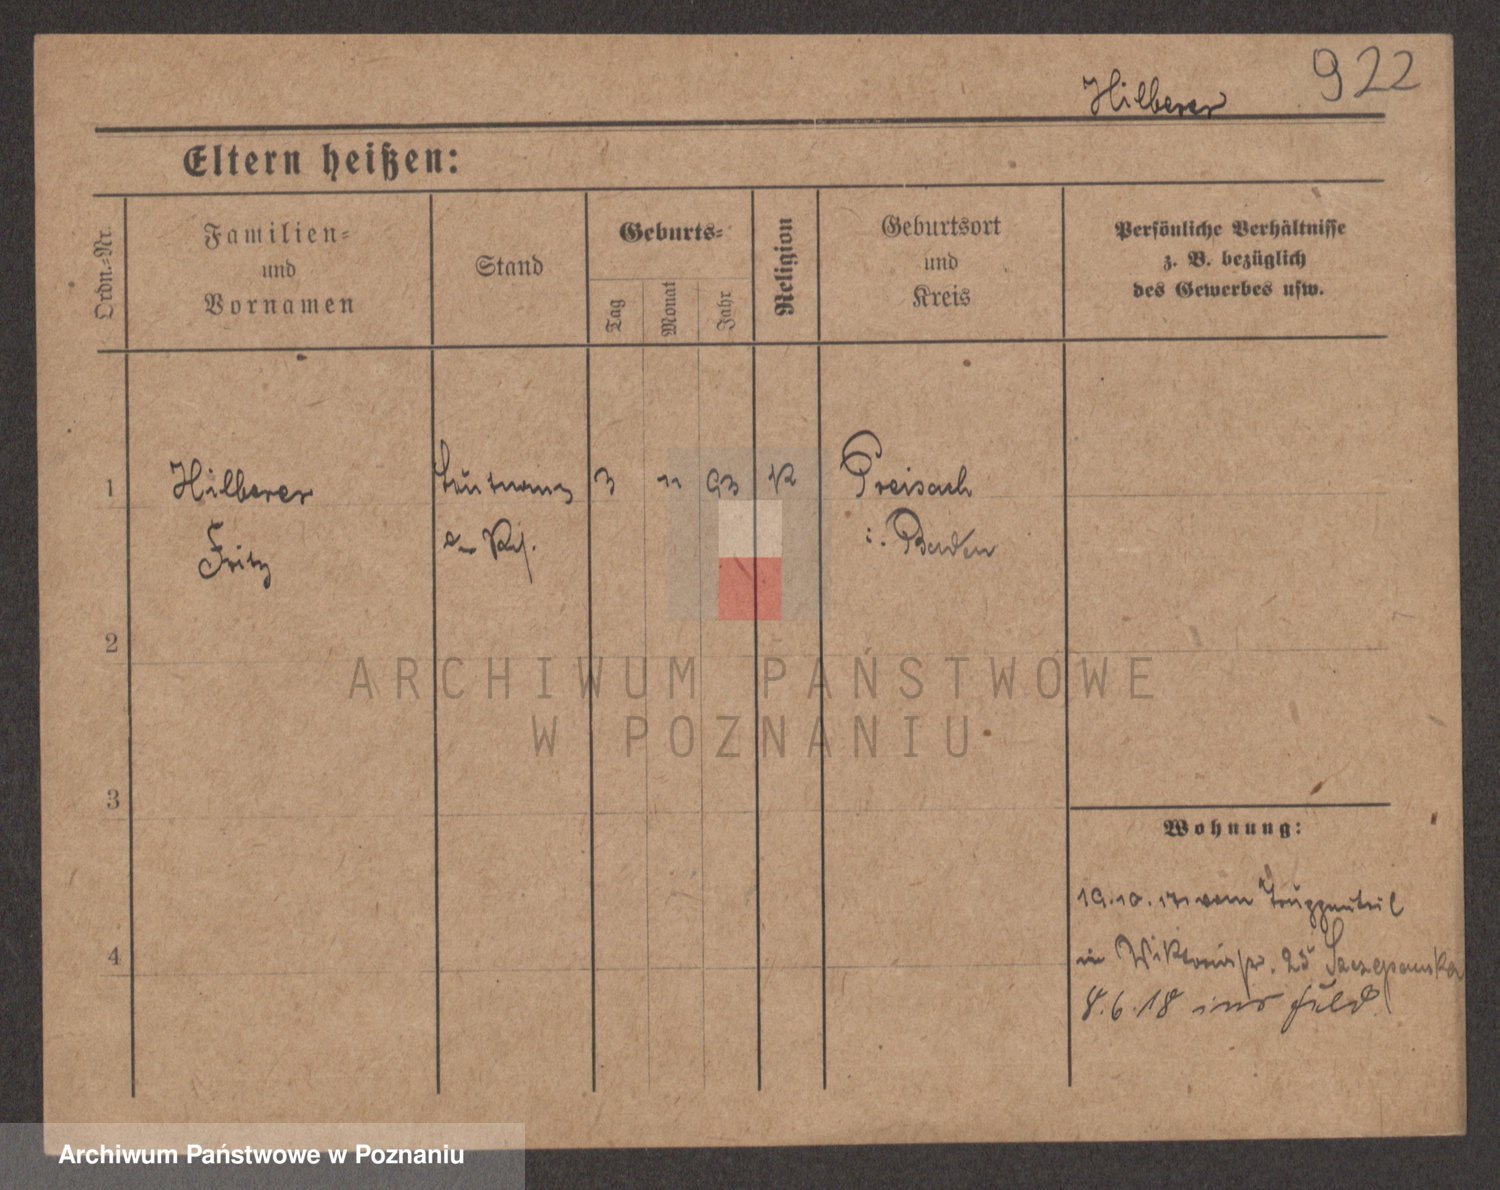 922
Hilberer
Eltern heißen:
Ordn.-Nr.
Familien-
und
Vornamen
Stand
Geburts-
Tag
Monat
Jahr
Religion
Geburtsort
und
Kreis
Persönliche Verhältnisse
z. B. bezüglich
des Gewerbes usw.
1 Hilberer Leutnant 3 11 93 K Breisach
Fritz i. Baden
2
3
4
Wohnung:
19.10.17 vom Truppenteil
in 25 Szczepanska
8.6.18 ins Feld
ARCHIWUM PAŃSTWOWE
W POZNANIU
Archiwum Państwowe w Poznaniu